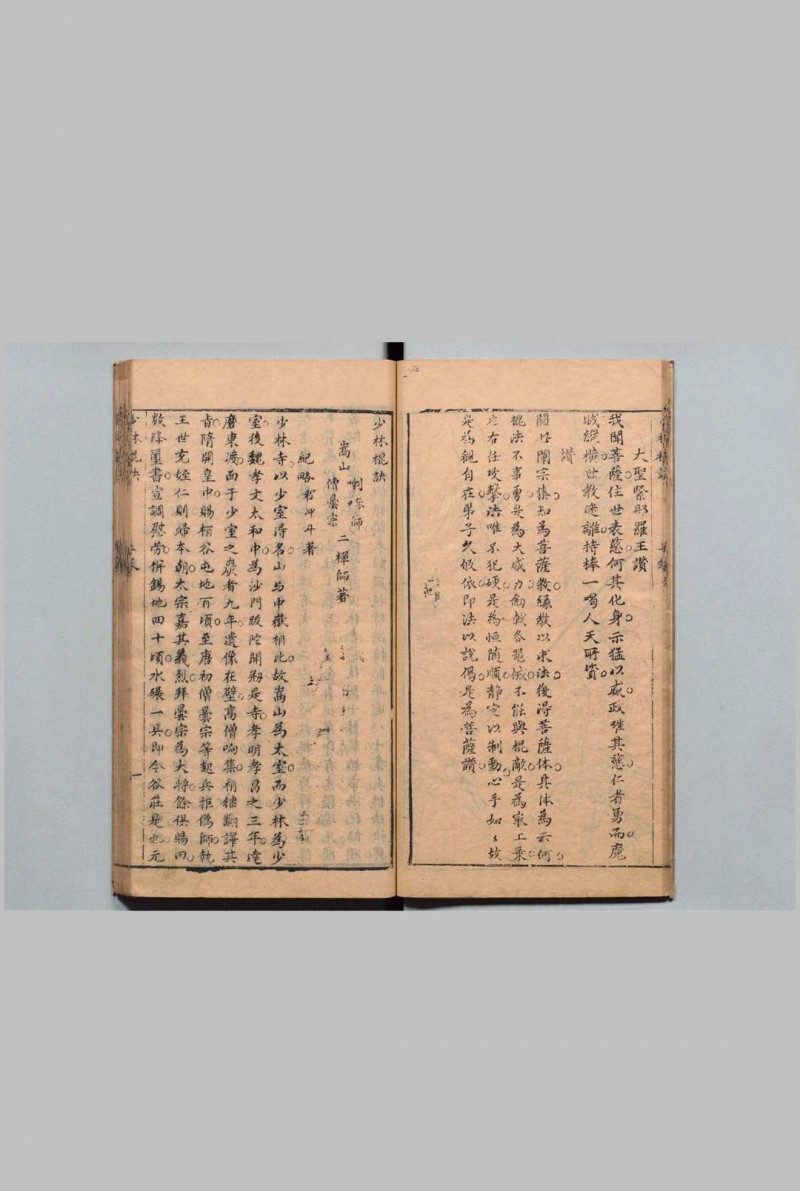 大聖緊那羅王讚
我聞菩薩住世表慈何其化身示猛以威政唯其慈仁者勇而魔
賊縱橫世教迷離持棒一喝人天所資
讚
闡宗
棍法不事勇是為大威力劍戟各器械不能與棍敵是為最上乘
左右任攻擊法唯不犯硬是為恒隨順靜定以制動心手如々故
是為觀自在弟子久皈依即法以說偈是為菩薩讚
少林棍訣
嵩山
喇嘛師
僧曇宗
二禪師著
紀略 程冲斗著
少林寺以少室得名山與中嶽相比故嵩山為太室而少林為少
室後魏孝文太和中為沙門跋陀開剏是寺孝明孝昌之三年達
磨東渡而于少室之
者九年遺像在壁高僧响集相繼翻譯其
旨隋開皇中賜栢谷屯地百頃至唐初僧曇宗等起兵拒偽師執
王世充姪仁則歸本朝太宗嘉其義烈拜曇宗為大將餘俱賜田
敕降璽書宣調慰勞併錫地四十頃水碾一具即今谷莊是也元
少林棍訣
一